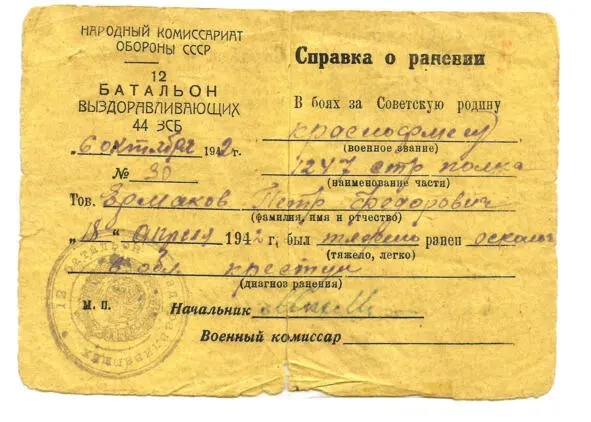 НАРОДНЫЙ КОМИССАРИАТ
ОБОРОНЫ СССР
12
БАТАЛЬОН
ВЫЗДОРАВЛИВАЮЩИХ
44 ЗСБ
„6 октября 1942г.
№ 30
Справка о ранении
В боях за Советскую родину
красноармеец
(военное звание)
1247 стр полка
(наименование части)
Тов. Ермаков Петр Федорович
(фамилия, имя и отчество)
„18" апреля 1942 г. был тяжело ранен оскол
(тяжело, легко)
в обл крестца
(диагноз ранения)
М. П.
Начальник
Военный комиссар